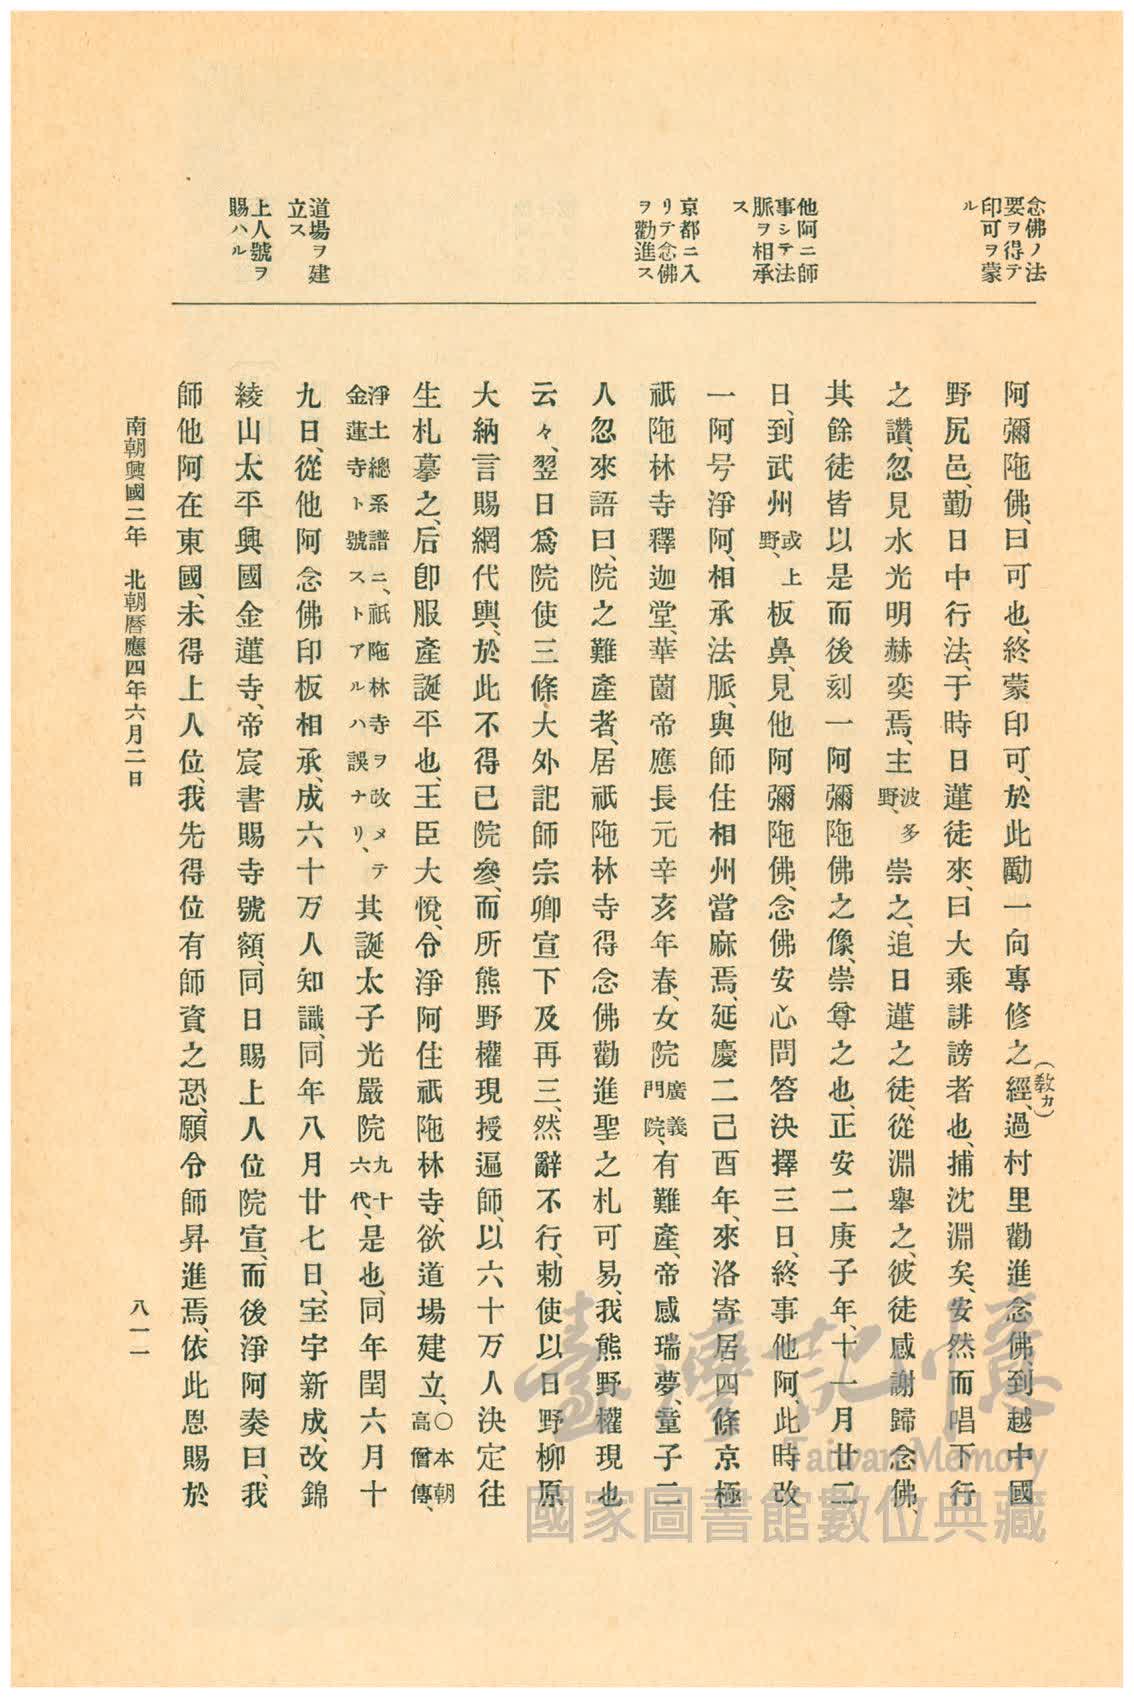 念佛ノ法
要ヲ得テ
印可ヲ蒙
ル
他阿ニ師
事シテ法
脈ヲ相承
ス
京都ニ入
リテ念佛
ヲ勸進ス
道場ヲ建
立ス
上人號ヲ
賜ハル
阿彌陁佛、曰可也、終蒙印可、於此勵一向專修之經、(教カ)過村里勸進念佛到越中國
野尻邑、勤日中行法、于時日蓮徒來、曰大乘誹謗者也、捕沈淵矣、安然而唱不行
之讚、忽見水光明赫奕焉、主波多野、崇之、追日蓮之徒、從淵舉之、彼徒感謝歸念佛、
其餘徒皆以是而後刻一阿彌陁佛之像、崇尊之也、正安二庚子年、十一月廿二
日、到武州或上野、板鼻、見他阿彌陁佛、念佛安心問答決擇三日、終事他阿、此時改
一阿号淨阿、相承法脈、與師住相州當麻焉、延慶二己酉年、來洛寄居四條京極
祇陁林寺釋迦堂、華蘭帝應長元辛亥年春、女院廣義門院、有難產、帝感瑞夢、童子二
人忽來語曰、院之難產者、居祇陁林寺得念佛勸進聖之札可易、我熊野權現也
云々、翌日爲院使三條、大外記師宗卿宣下及再三、然辭不行、勅使以日野柳原
大納言賜網代輿、於此不得已院參、而所熊野權現授遍師、以六十万人決定往
生札摹之、后卽服產誕平也、王臣大悅、令淨阿住祇陁林寺、欲道場建立、〇本朝高僧傳、
淨土總系譜ニ、祇陁林寺ヲ改メテ金蓮寺ト號ストアルハ誤ナリ、其誕太子光嚴院九十六代、是也、同年閏六月十
九日、從他阿念佛印板相承、成六十万人知識、同年八月廿七日、宝宇新成、改錦
綾山太平興國金蓮寺、帝宸書賜寺號額、同日賜上人位院宣、而後淨阿奏曰、我
師他阿在東國、未得上人位、我先得位有師資之恐、願令師昇進焉、依此恩賜於
南朝興國二年 北朝曆應四年六月二日
八一一
臺灣記憶
Taiwan Memory
國家圖書館數位典藏